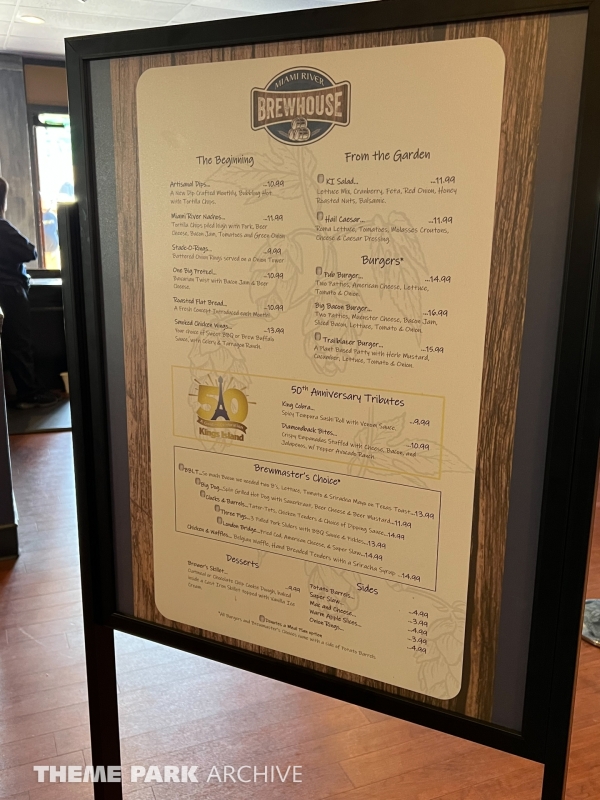 MIAMI RIVER
BREWHOUSE
The Beginning
Artisanal Dips... ...10.99
A New Dip Crafted Monthly, Bubbling Hot
with Tortilla Chips.
Miami River Nachos... ...11.99
Tortilla Chips piled high with Pork, Beer
Cheese, Bacon Jam, Tomatoes and Green Onion
Stack-O-Rings... ...9.99
Battered Onion Rings served on a Onion Tower
One Big Pretzel... ...10.99
Bavarian Twist with Bacon Jam & Beer
Cheese.
Roasted Flat Bread... ...10.99
A Fresh Concept Introduced each Month!
Smoked Chicken Wings... ...13.99
Your choice of Sweet BBQ or Brew Buffalo
Sauce, with Celery & Tarragon Ranch.
From the Garden
KI Salad... ...11.99
Lettuce Mix, Cranberry, Feta, Red Onion, Honey
Roasted Nuts, Balsamic.
Hail Caesar... ...11.99
Roma Lettuce, Tomatoes, Molasses Croutons,
Cheese & Caesar Dressing.
Burgers*
Pub Burger... ...14.99
Two Patties, American Cheese, Lettuce,
Tomato & Onion.
Big Bacon Burger... ...16.99
Two Patties, Muenster Cheese, Bacon Jam,
Sliced Bacon, Lettuce, Tomato & Onion.
Trailblazer Burger... ...15.99
A Plant Based Patty with Herb Mustard,
Cucumber, Lettuce, Tomato & Onion.
50
Kings Island
50th Anniversary Tributes
King Cobra... ...9.99
Spicy Tempura Sushi Roll with Venom Sauce
Diamondback Bites... ...10.99
Crispy Empanadas Stuffed with Cheese, Bacon, and
Jalapenos, w/ Pepper Avocado Ranch.
Brewmaster's Choice*
BBLT...So much Bacon we needed two B's, Lettuce, Tomato & Sriracha Mayo on Texas Toast...13.99
Big Dog...Split Grilled Hot Dog with Sauerkraut, Beer Cheese & Beer Mustard...11.99
Clucks & Barrels...Tater Tots, Chicken Tenders & Choice of Dipping Sauce...14.99
Three Pigs...3 Pulled Pork Sliders with BBQ Sauce & Pickles...13.99
London Bridge...Fried Cod, American Cheese, & Super Slaw...14.99
Chicken & Waffles... Belgian Waffle, Hand Breaded Tenders with a Sriracha Syrup ...14.99
Desserts
Brewer's Skillet... ...9.99
Caramel or Chocolate Chip Cookie Dough, baked
inside a Cast Iron Skillet topped with Vanilla Ice
Cream.
Sides
Potato Barrels... ...4.99
Super Slaw... ...3.99
Mac and Cheese... ...4.99
Warm Apple Slices... ...3.99
Onion Rings... ...4.99
Denotes a Meal Plan option
*All Burgers and Brewmaster's Choices come with a side of Potato Barrels.
THEME PARK ARCHIVE